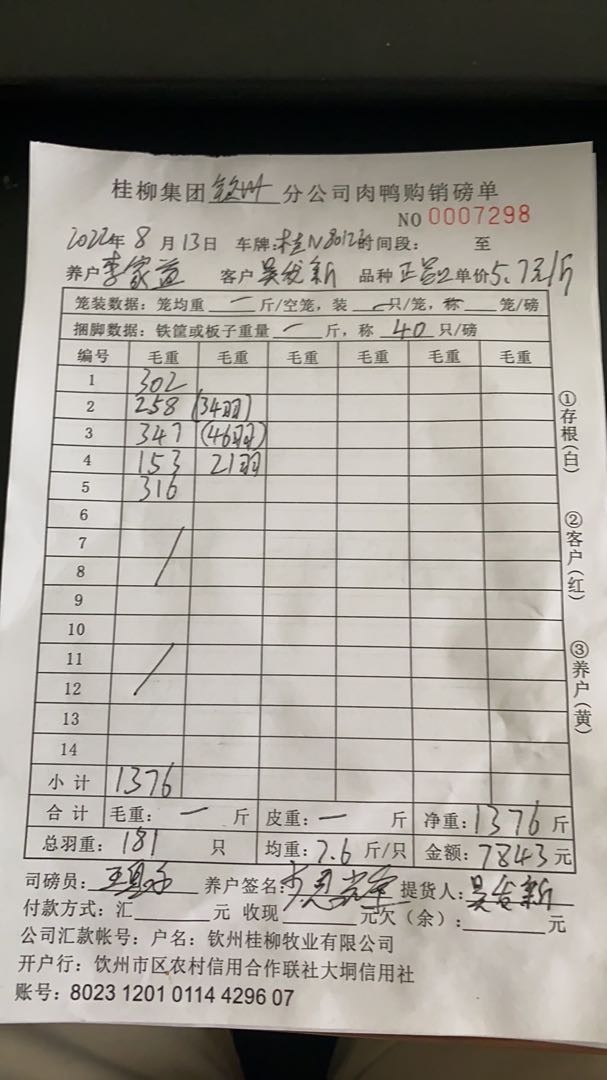 桂柳集团 钦州 分公司肉鸭购销磅单
NO 0007298
2022年 8 月 13日 车牌:桂N8012 时间段: 至
养户 李家益 客户 吴 新 品种 单价5.7元/斤
笼装数据: 笼均重 一 斤/空笼, 装 一 只/笼, 称 笼/磅
捆脚数据: 铁筐或板子重量 一 斤, 称 40 只/磅
编号 毛重 毛重 毛重 毛重 毛重 毛重
1 302
2 258 (34羽)
3 347 (46羽)
4 153 21羽
5 316
6
7
8
9
10
11
12
13
14
小 计 1376
合 计 毛重: 一 斤 皮重: 一 斤 净重: 1376 斤
总羽重: 181 只 均重: 7.6 斤/只 金额: 7843 元
司磅员: 王 养户签名: 李 提货人: 吴 新
付款方式: 汇 元 收现 元欠(余): 元
公司汇款帐号: 户名: 钦州桂柳牧业有限公司
开户行: 钦州市区农村信用合作联社大垌信用社
账号: 8023 1201 0114 4296 07
①存根(白)
②客户(红)
③养户(黄)